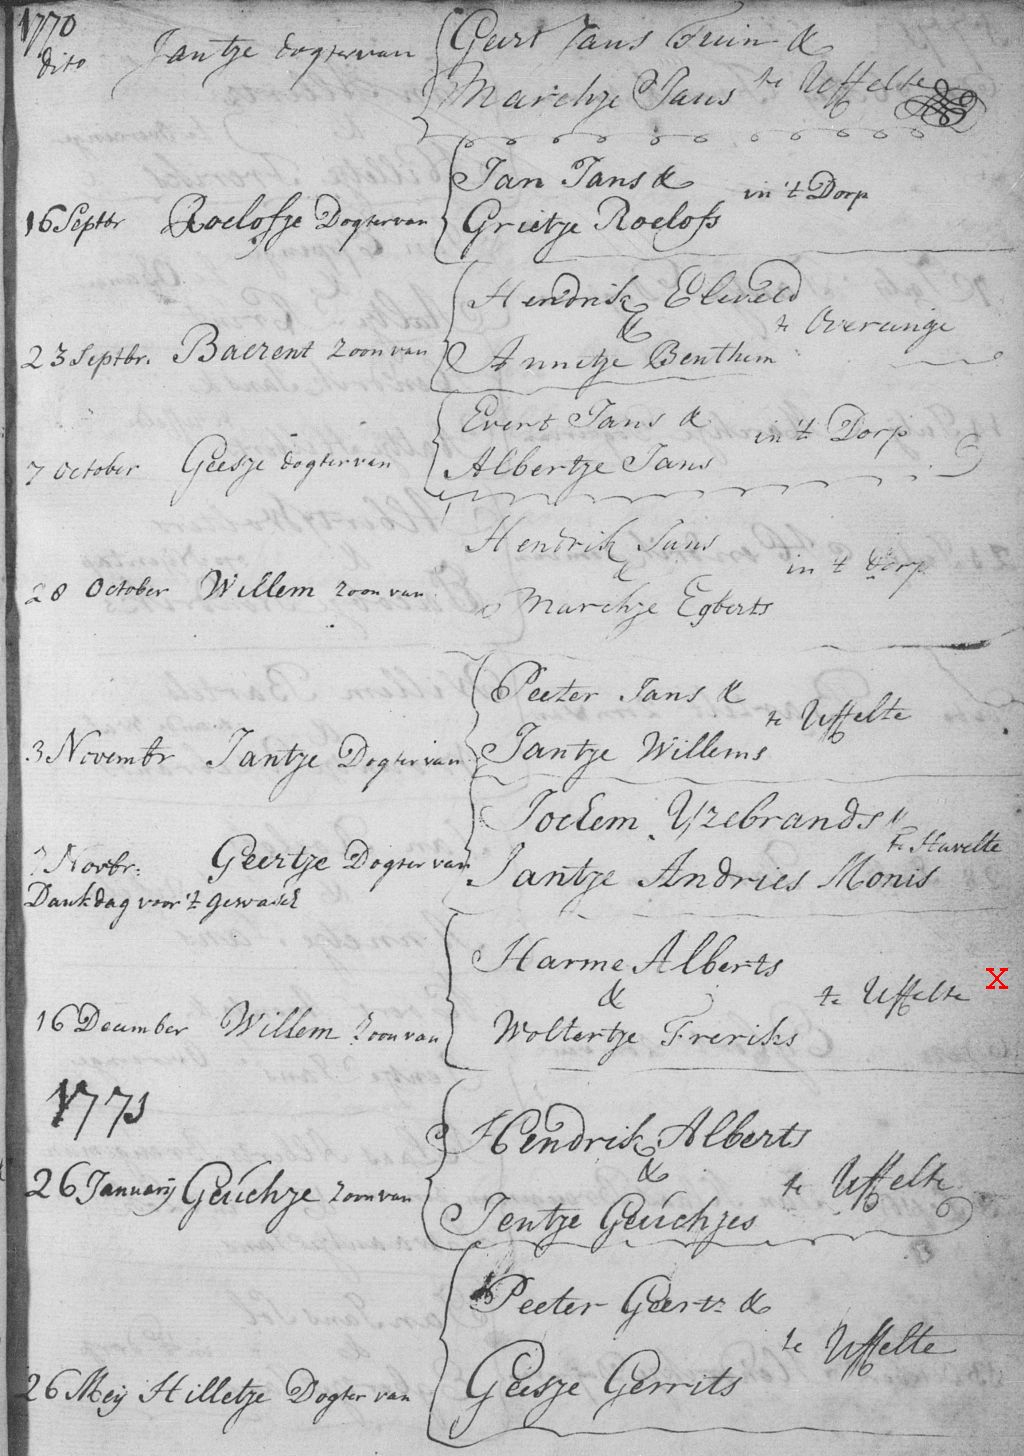 1770
dito Jantje dogter van Geert Jans Tuin &
Marchje Jans te Uffelte
Jan Jans &
in 't Dorp
16 Septbr Roelofje Dogter van Grietje Roelofs
Hendrik Eleveld
& te Overeinge
23 Septbr. Baerent zoon van Annetje Benthem
Evert Jans &
in 't Dorp
7 October Geesje dogter van Albertje Jans
Hendrik Jans
& in 't dorp
28 October Willem zoon van Marchje Egberts
Peeter Jans &
te Uffelte
3 Novembr Jantje Dogter van Jantje Willems
Jochem Yzebrands &
te Havelte
Novbr: Geertje Dogter van Jantje Andries Monis
Dankdag voor 't gewasch
Harme Alberts
& te Uffelte X
16 December Willem Zoon van Woltertje Freriks
1771
Hendrik Alberts
& te Uffelte
26 Januarij Geuchje zoon van Jentje Geuchjes
Peeter Geerts &
te Uffelte
26 Meij Hilletje Dogter van Geesje Gerrits